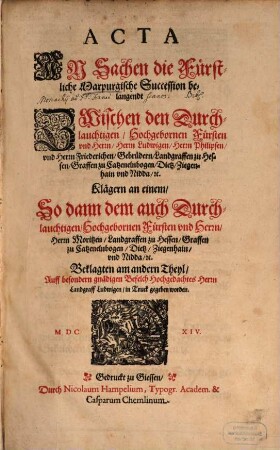 ACTA
IN Sachen die Fürst
liche Marpurgische Succession be-
langendt
ZWischen den Durch-
lauchtigen / Hochgebornen Fürsten
vnd Herrn / Herrn Ludwigen / Herrn Philipsen /
vnd Herrn Friederichen / Gebrüdern / Landgraffen zu Hes-
sen / Graffen zu Catzenelnbogen / Dietz / Ziegen-
hain vnd Nidda / ꝛc.
Klägern an einem /
So dann dem auch Durch-
lauchtigen / Hochgebornen Fürsten vnd Herrn /
Herrn Moritzen / Landgraffen zu Hessen / Graffen
zu Catzenelnbogen / Dietz / Ziegenhain /
vnd Nidda / ꝛc.
Beklagten am andern Theyl /
Auff besondern gnädigen Befelch Hochgedachtes Herrn
Landgraff Ludwigen / in Truck gegeben worden.
MDC XIV.
Gedruckt zu Giessen /
Durch Nicolaum Hampelium, Typogr. Academ. &
Casparum Chemlinum.